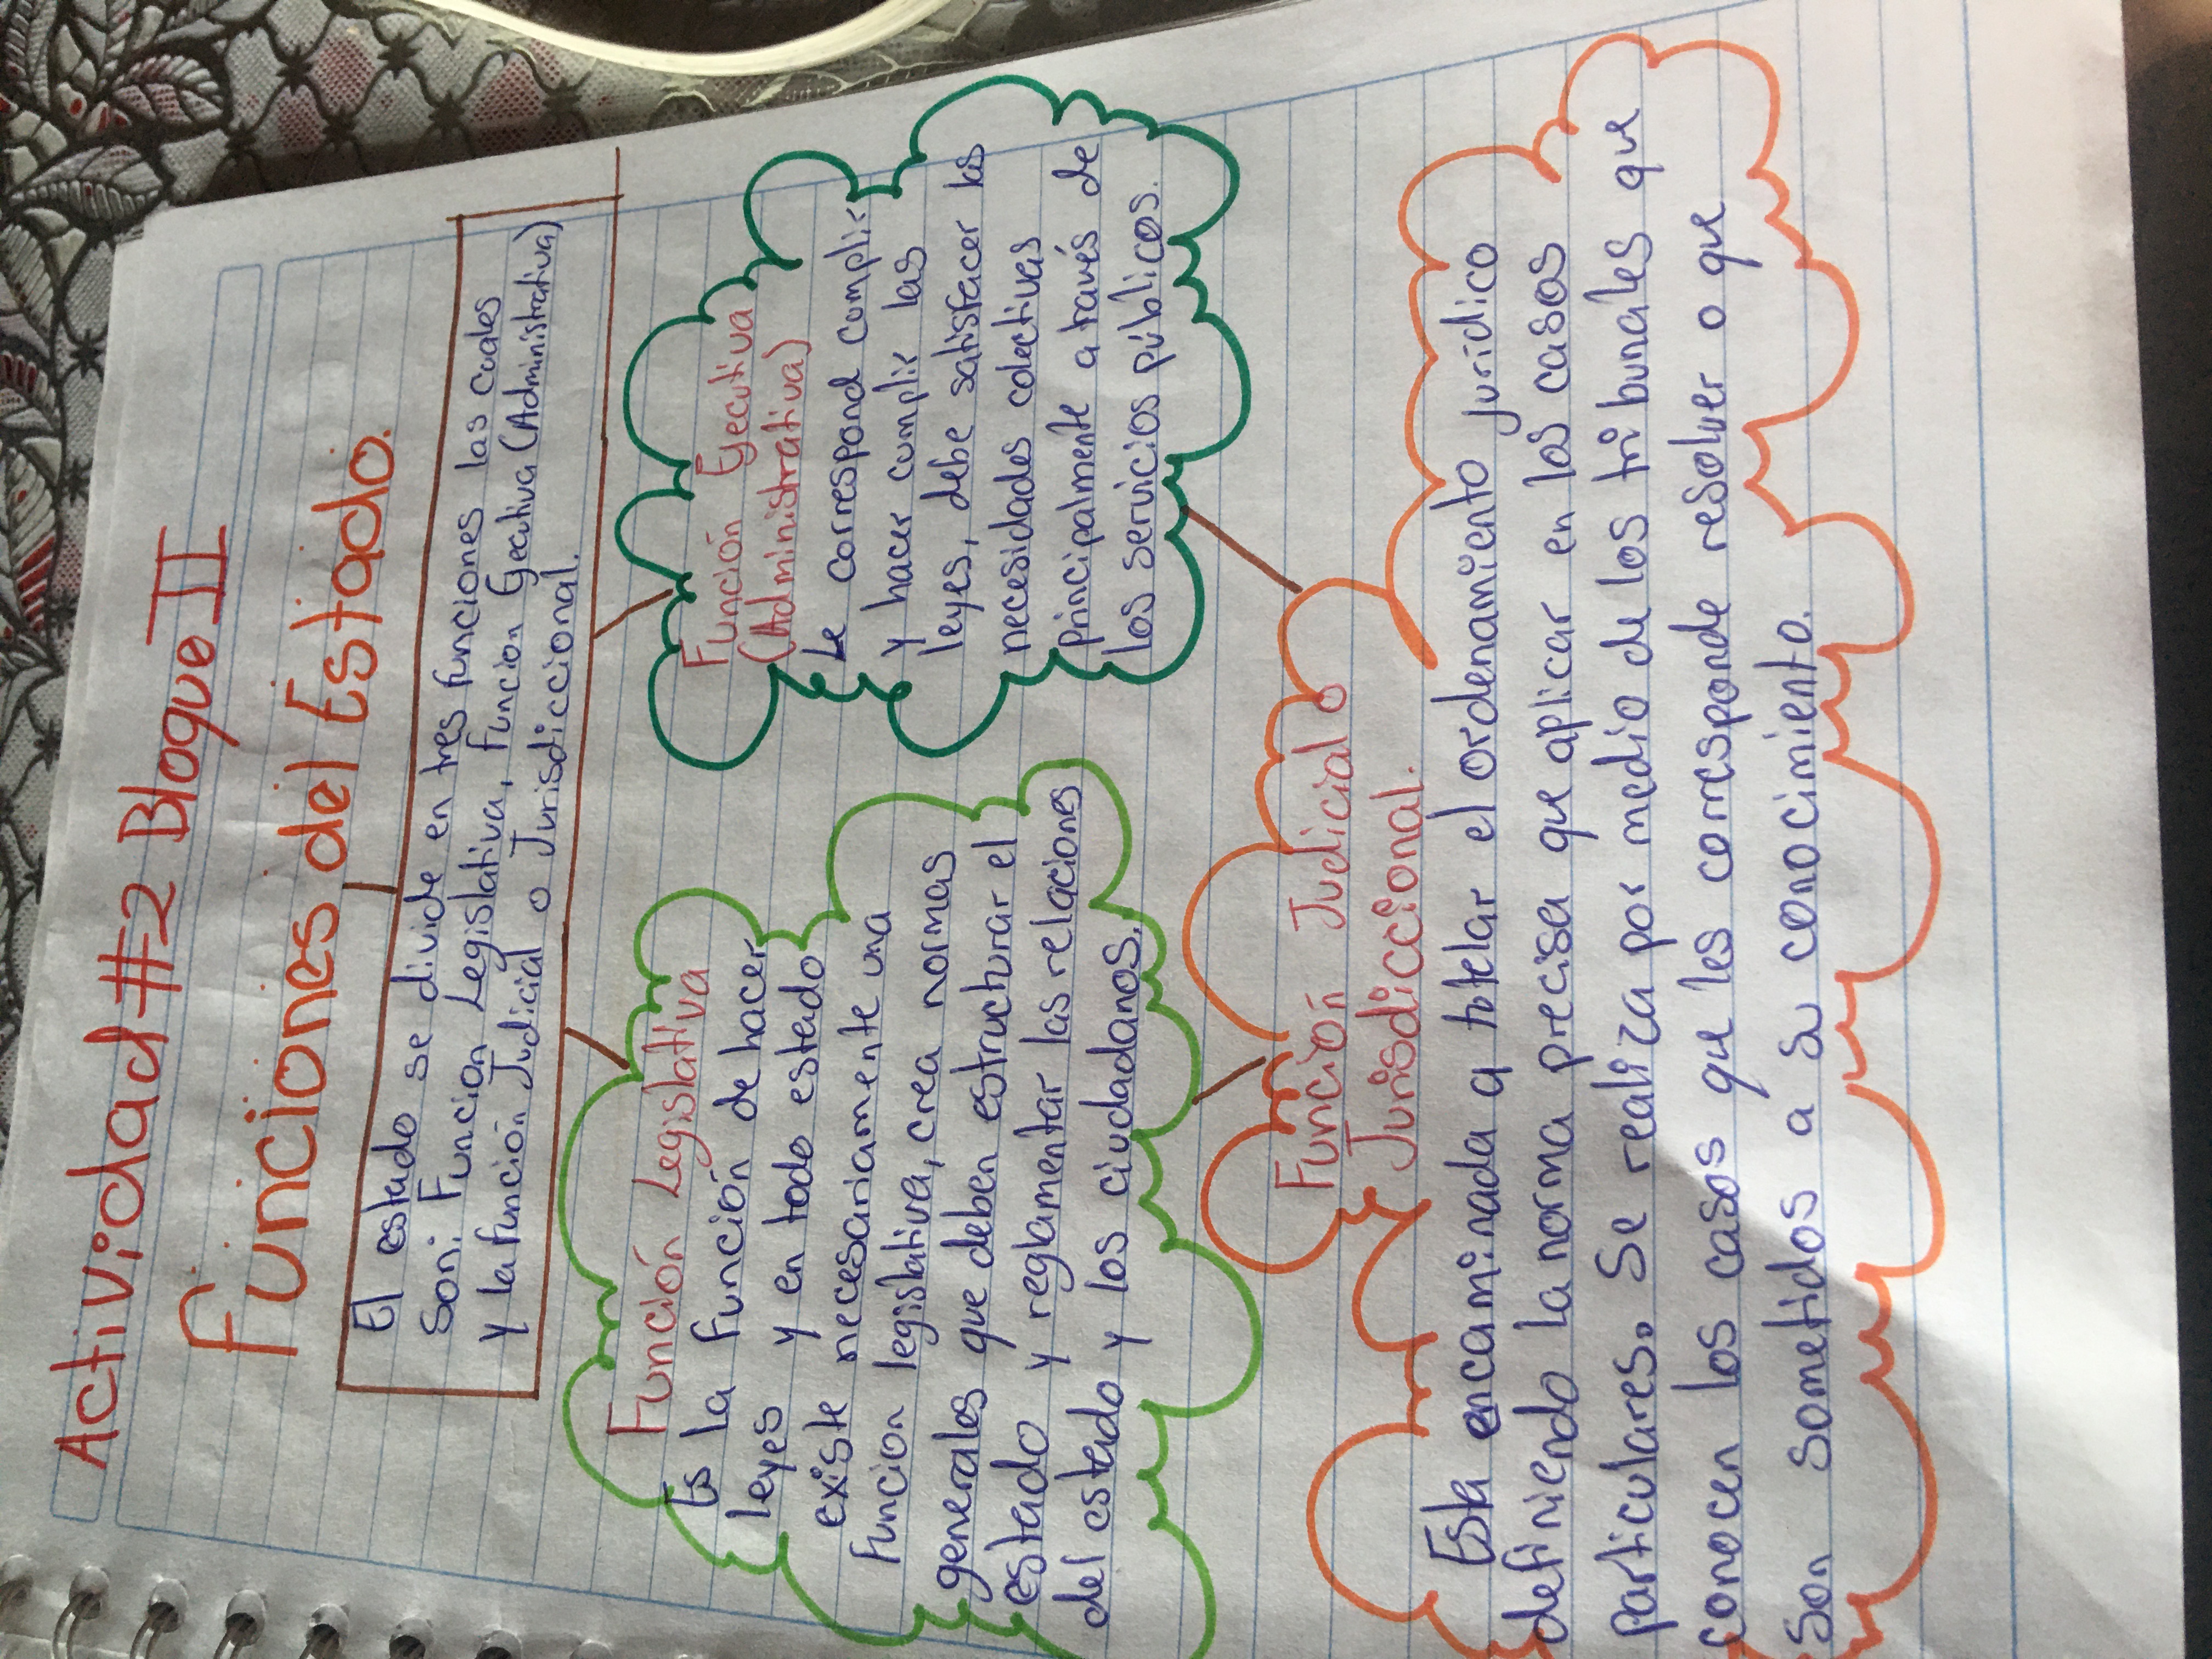 Actividad #2 Bloque II
Funciones del Estado.
El estado se divide en tres funciones las cuales
son: Función Legislativa, Función Ejecutiva (Administrativa)
y la función Judicial o Jurisdiccional.
Función Legislativa
Es la función de hacer
leyes y en todo estado
existe necesariamente una
función legislativa, crea normas
generales que deben estructurar el
estado y reglamentar las relaciones
del estado y los ciudadanos.
Función Ejecutiva
(Administrativa)
Le correspond cumplir
y hacer cumplir las
leyes, debe satisfacer las
necesidades colectivas
principalmente a través de
los servicios públicos.
Función Judicial o
Jurisdiccional.
Esta encaminada a totelar el ordenamiento jurídico
definiendo la norma precisa que aplicar en los casos
particulares. Se realiza por medio de los tribunales que
conocen los casos que les corresponde resolver o que
son sometidos a su conocimiento.